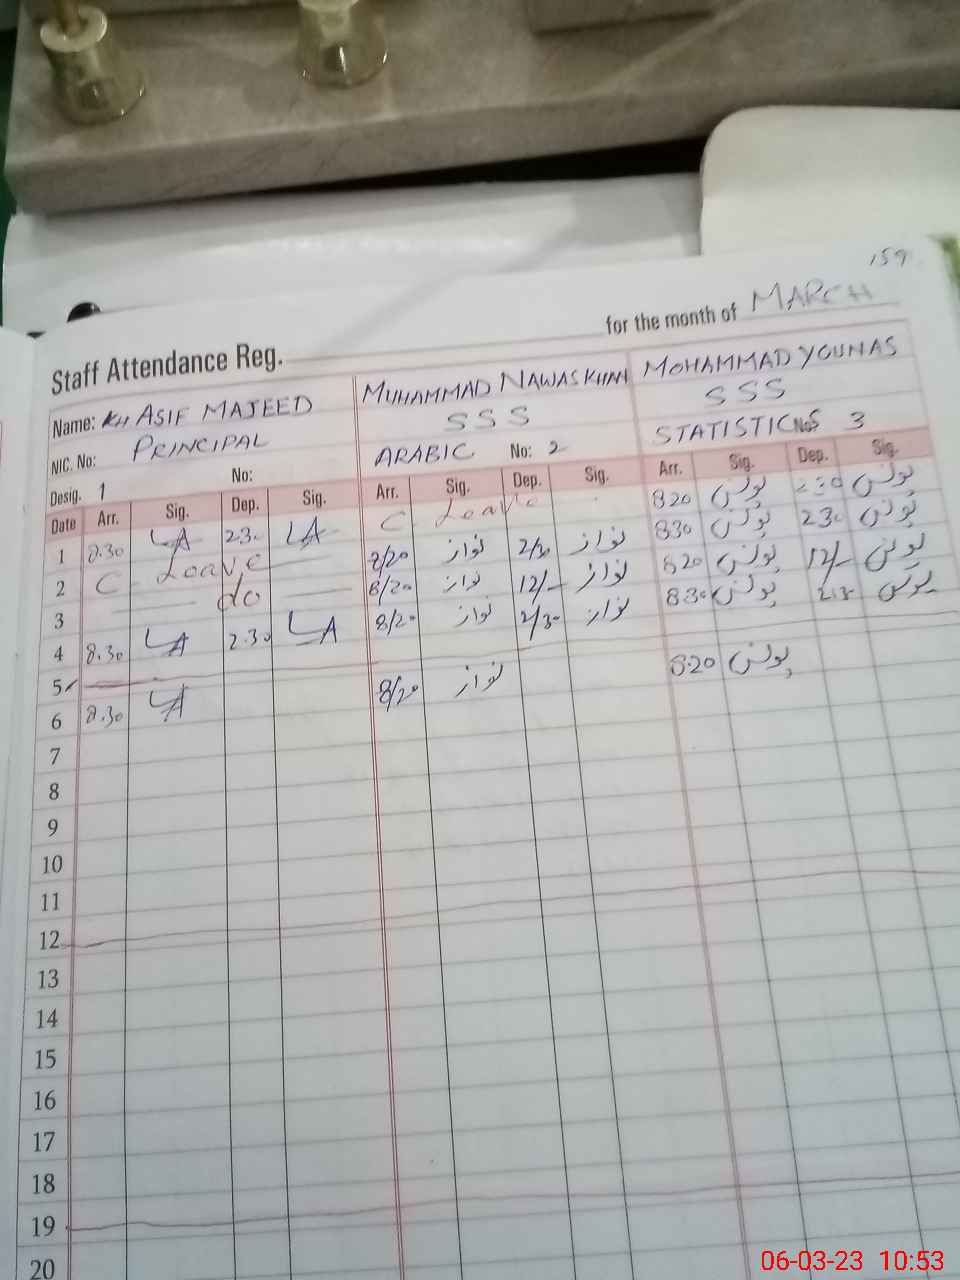 159
Staff Attendance Reg. for the month of MARCH
Name: KH ASIF MAJEED MUHAMMAD NAWAS KHAN MOHAMMAD YOUNAS
PRINCIPAL SSS SSS
NIC. No: ARABIC No: 2 STATISTICS No: 3
Desig. 1 No:
Date Arr. Sig. Dep. Sig. Arr. Sig. Dep. Sig. Arr. Sig. Dep. Sig.
1 8.30 LA 2.30 LA C Leave 820 یونس 230 یونس
2 C Leave 8/20 نواز 2/30 نواز 830 یونس 230 یونس
3 do 8/20 نواز 12/- نواز 820 یونس 12/- یونس
4 8.30 LA 2.30 LA 8/20 نواز 2/30 نواز 830 یونس 2.30 یونس
5
6 8.30 LA 8/20 نواز 8.20 یونس
7
8
9
10
11
12
13
14
15
16
17
18
19
20
06-03-23 10:53